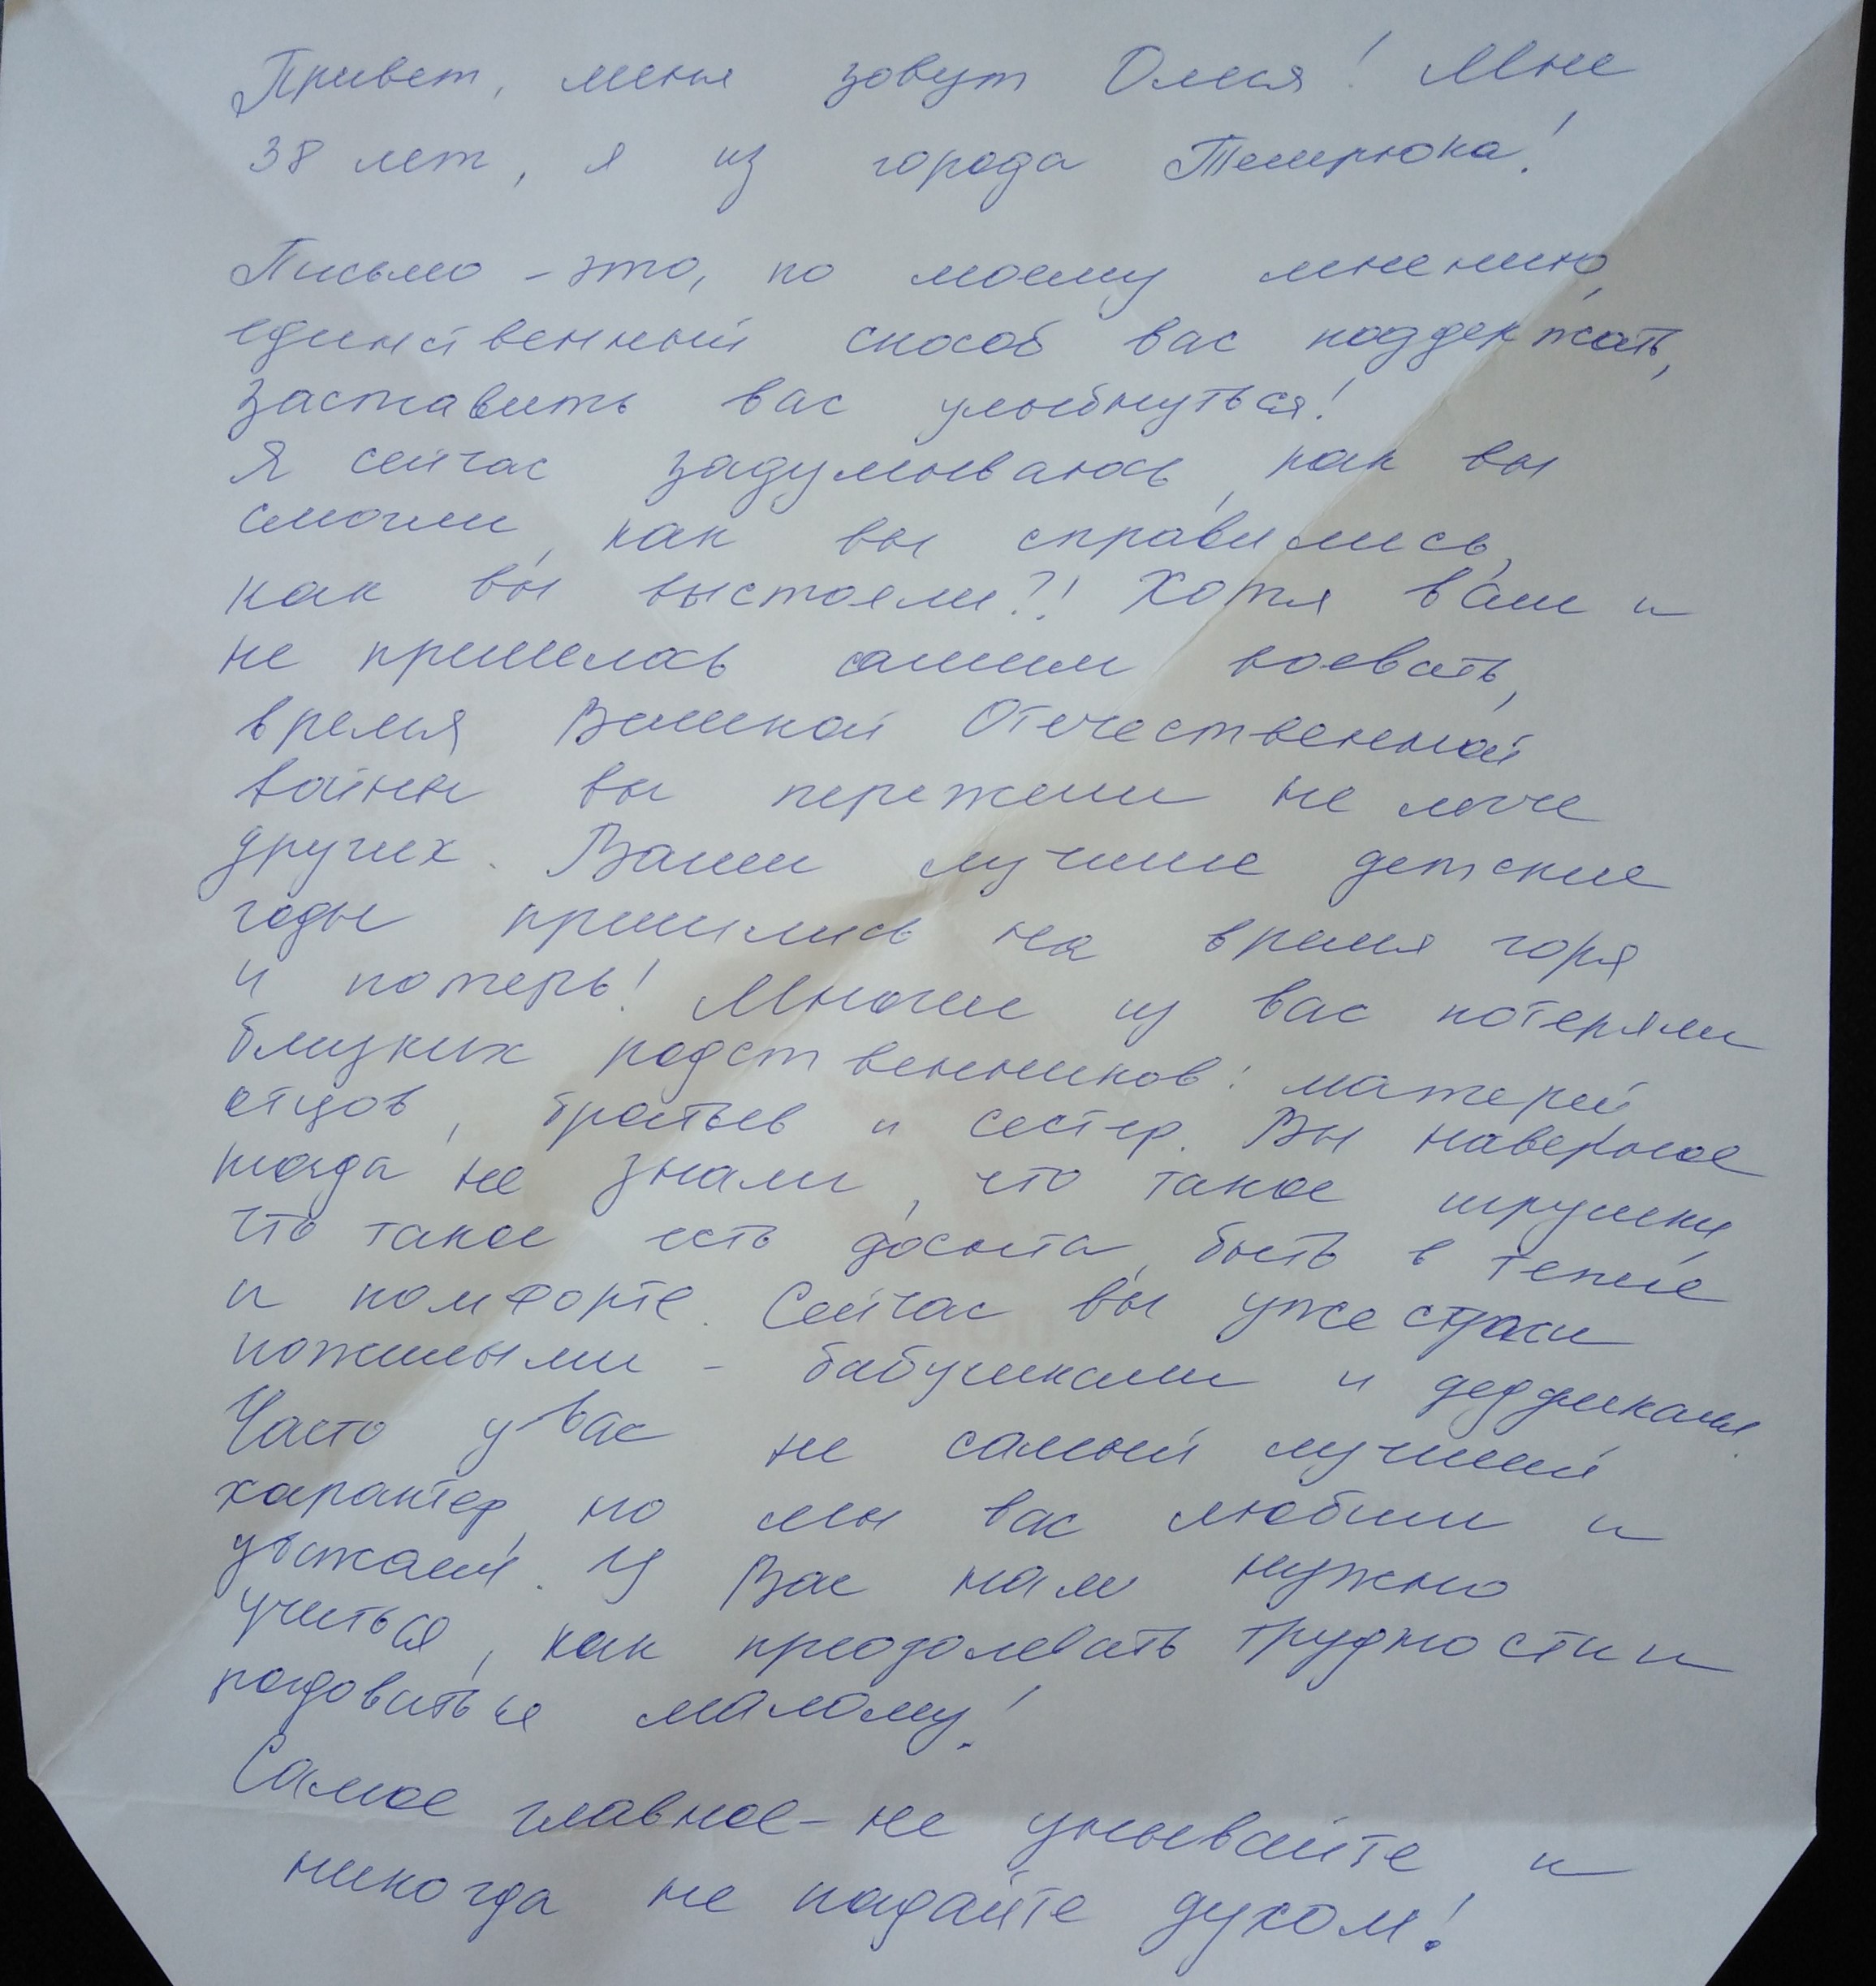 Привет, меня зовут Олеся! Мне
38 лет, я из города Темрюка!
Письмо - это, по моему мнению,
единственный способ вас поддержать,
заставить вас улыбнуться!
Я сейчас задумываюсь, как вы
смогли, как вы справились,
как вы выстояли?! Хотя вам и
не пришлось самим воевать,
время Великой Отечественной
войны вы пережили не легче
других. Ваши лучшие детские
годы пришлись на время горя
и потерь! Многие из вас потеряли
близких родственников: матерей
отцов, братьев и сестер. Вы наверное
тогда не знали, что такое игрушки,
что такое есть досыта, быть в тепле
и комфорте. Сейчас вы уже стали
пожилыми - бабушками и дедушками.
Часто у вас не самый лучший
характер, но мы вас любим и
уважаем. У Вас нам нужно
учиться, как преодолевать трудности и
радоваться малому!
Самое главное - не унывайте и
никогда не падайте духом!